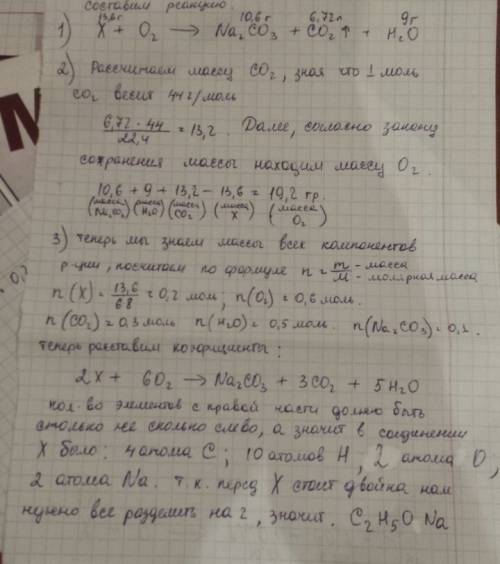 составим реакцию.
13,6г 10,6 г 6,72л 9г
1) X + O₂ → Na₂CO₃ + CO₂↑ + H₂O
2) Рассчитаем массу CO₂, зная что 1 моль
CO₂ весит 44г/моль
6,72 · 44 / 22,4 = 13,2. Далее, согласно закону
сохранения массы находим массу O₂.
10,6 + 9 + 13,2 - 13,6 = 19,2 гр.
(масса Na₂CO₃) (масса H₂O) (масса CO₂) (масса X) (масса O₂)
3) теперь мы знаем массы всех компонентов
р-ции, посчитаем по формуле n = m/M - масса - молярная масса
n(X) = 13,6/68 = 0,2 моль; n(O₂) = 0,6 моль.
n(CO₂) = 0,3 моль n(H₂O) = 0,5 моль. n(Na₂CO₃) = 0,1.
теперь расставим коэфициенты:
2X + 6O₂ → Na₂CO₃ + 3CO₂ + 5H₂O
кол-во элементов с правой части должно быть
столько же сколько слево, а значит в соединении
X было: 4 атома C; 10 атомов H, 2 атома O,
2 атома Na. т.к. перед X стоит двойка нам
нужно все разделить на 2, значит. C₂H₅ONa